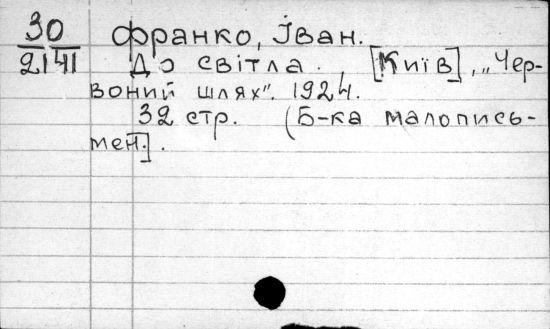 30
2141
Франко, Іван.
До світла. [Київ], „Чер-
воний шлях". 1924.
32 стр. (Б-ка малопись-
мен.].